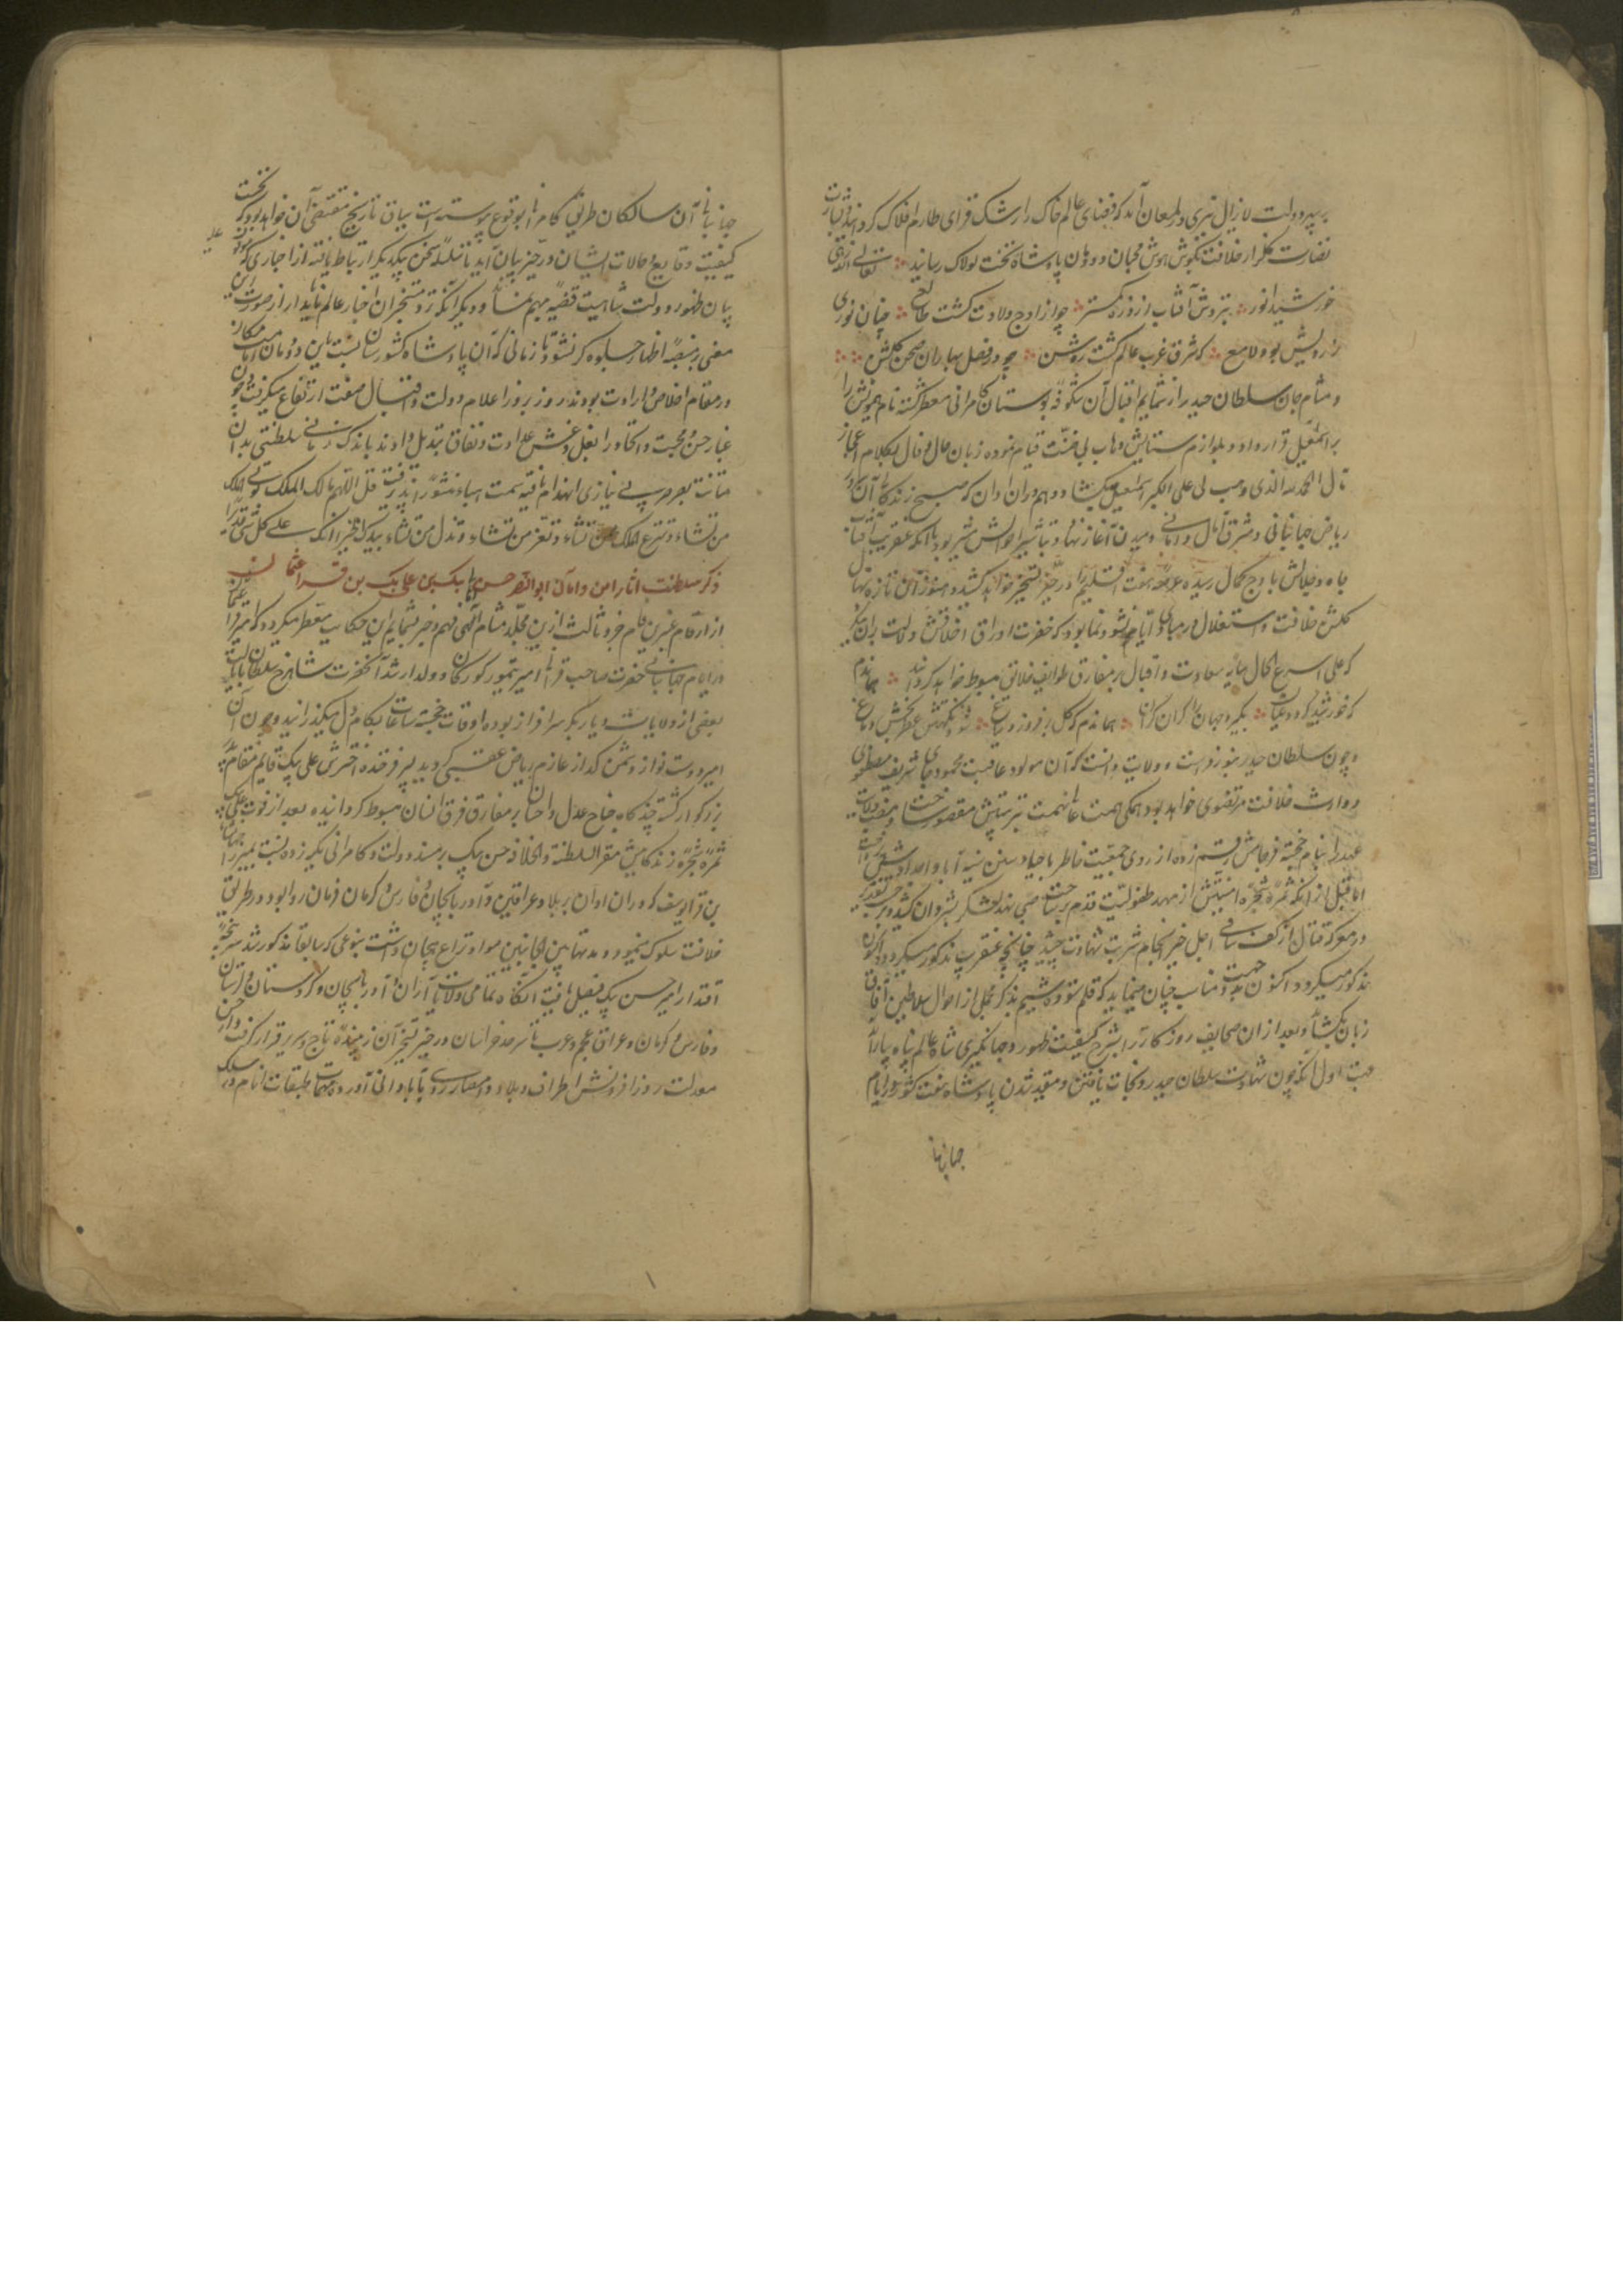 بر سپهر دولت لایزال نیری در لمعان آمد که فضای عالم خاک را رشک فزای طارم افلاک گردانید و بشارت
نضارت گلزار خلافت بگوش هوش محبان دودمان پادشاه تخت لولاک رسانید تعالی
خورشید انور بنزدش آفتاب از ذره کمتر چو از اوج ولادت گشت طالع چنان نوری
ز رویش بود لامع که شرق و غرب عالم گشت روشن چو در فصل بهاران صحن گلشن
و مشام جان سلطان حیدر از شمایم اقبال آن شکوفه بوستان کامرانی معطر گشته نام همایونش را
بر اسمعیل قرار داد و بلوازم ستایش وهاب بی ضنّت قیام نموده زبان حال و قال بکلام اعجاز
مآل الحمد لله الذی وهب لی علی الکبر اسمعیل بگشاد و هم در آن اوان که صبح زندگانی آن
ریاض جهانبانی و مشرق آمال و امانی دمیدن آغاز نهاد تباشیر احوالش مبشر بود بآنکه عنقریب آفتاب
جاه و جلالش باوج کمال رسیده عرصه هفت اقلیم را در حیز تسخیر خواهد کشید و هنوز آن تازه نهال
گلشن خلافت و استقلال در مبادی ایام نشو و نما بود که خضرت اوراق اخلاقش دلالت بدان میکرد
که علی اسرع الحال سایه سعادت و اقبال بر مفارق طوایف خلایق مبسوط خواهد گردانید هماندم
که خورشید گردد عیان بگیرد جهان را کران تا کران هماندم که گل بر فروزد ز باغ شود نکهتش عطر بخش دماغ
و چون سلطان حیدر بنور فراست و ولایت دانست که آن مولود عاقبت محمود حامی شریعت مصطفوی
و وارث خلافت مرتضوی خواهد بود همگی همت عالی نهمت بتربیتش مقصور ساخت و منصب ولایت
عهد را بنام خجسته فرجامش رقم زده از روی جمعیت خاطر باحیاء سنن سنیه آبا و اجداد
اما قبل از آنکه ثمره شجره امنیتش از مهد طفولیت قدم بر ساحت صبی نهد لشکر بشروان کشید و بحسب تقدیر
در معرکه قتال از کف ساقی اجل خیر انجام شربت شهادت چشید چنانچه عنقریب مذکور میگردد و اکنون
مذکور میگردد اکنون جهت مناسب چنان مینماید که قلم ستوده شیم بذکر مجملی از احوال سلاطین آفاق
زبان بگشاید و بعد از آن صحایف روزگار را بشرح کیفیت ظهور و جهانگیری شاه عالم پناه بیاراید
جهت اول آنکه چون شهادت سلطان حیدر و نجات یافتن و مقید شدن پادشاه هفت کشور در ایام
جهانبانی
جهانبانی آن سالکان طریق کامرانی بوقوع پیوسته است سیاق تاریخ مقتضی آن خواهد بود که نخست
کیفیت وقایع و حالات ایشان در حیز بیان آید تا سلسله سخن بیکدیگر ارتباط یافته از اخباری که موقوف علیه
بیان ظهور دولت شاهیست قضیه مبهم نماند و دیگر آنکه نزد مستخبران اخبار عالم ناپایدار از صورت این
معنی بر منصه اظهار جلوه گر نشود تا زمانی که آن پادشاه کشورستان نسبت باین دودمان امامت مکان
در مقام اخلاص و ارادت بودند روز بروز اعلام دولت و اقبال صفت ارتفاع میگرفت و چون
غبار حسن و محبت و اتحاد را بغل و غش عداوت و نفاق تبدیل دادند باندک زمانی سلطنتی بدان
متانت بصرصر بی نیازی انهدام یافته سمت هباء منثورا پذیرفت قل اللهم مالک الملک توتی الملک
من تشاء و تنزع الملک ممن تشاء و تعز من تشاء و تذل من تشاء بیدک الخیر انک علی کل شیء قدیر
ذکر سلطنت آثار امن و امانی ابو النصر حسن بیک بن علی بیک بن قرا عثمان
از ارقام عنبرین فام جزو ثالث ازین مجلد مشام آگهی فهم و خبر بشمایم این حکایت معطر میگردد که امیر قرا عثمان
در ایام جهانبانی حضرت صاحب قرانی امیر تیمور گورکان و ولد ارشد آنحضرت شاهرخ سلطان بایالت
بعضی از ولایات دیار بکر سرافراز بوده اوقات خجسته ساعات بکام دل میگذرانید و چون آن
امیر دوست نواز دشمن گداز عازم ریاض عقبی گردید پسر فرخنده اخترش علی بیک قایم مقام پدر
بزرگوار گشته چندگاه جناح عدل و احسان بر مفارق فرق انسان مبسوط گردانیده بعد از فوت علی بیک
ثمره شجره زندگانیش مقر السلطنة و الخلافه حسن بیک بر مسند دولت و کامرانی تکیه زده نسبت بمیرزا جهانشاه
بن قرا یوسف که در آن اوان بر بلاد عراقین و آذربایجان و فارس و کرمان فرمان روا بود در طریق
خلافت سلوک مینمود و مدتها بین الجانبین مواد نزاع هیجان داشت بنوعی که سابقا مذکور شد سرپنجه
اقتدار امیر حسن بیک فیصل یافت آنگاه تمامی ولایات آران و آذربایجان و کردستان و لرستان
و فارس و کرمان و عراق عجم و عرب تا سرحد خراسان در حیز تسخیر آن زیبنده تاج و سریر قرار گرفت و از حسن
معدلت روز افزونش اطراف بلاد و امصار روی بآبادانی آورده مهمات طبقات انام در سلک